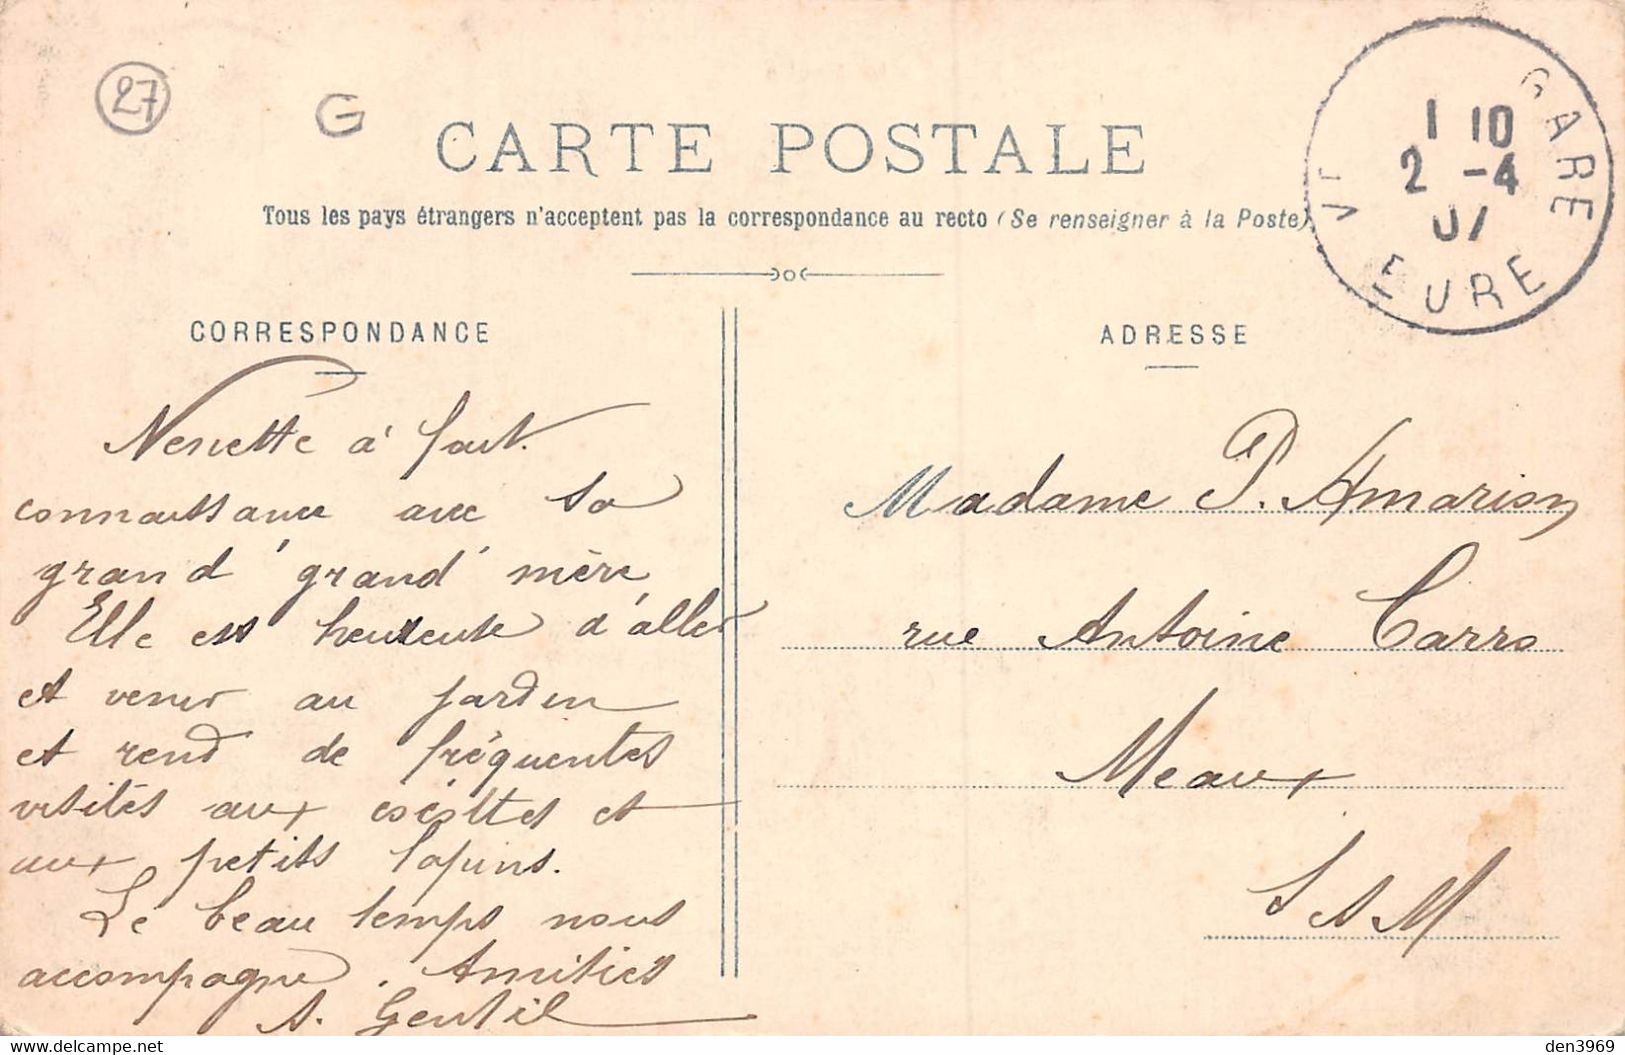 27
G
CARTE POSTALE
Tous les pays étrangers n'acceptent pas la correspondance au recto (Se renseigner à la Poste)
GARE
1 10
2 -4
07
EURE
CORRESPONDANCE
Nenette à fait
connaissance avec sa
grand' grand' mère
Elle est heureuse d'aller
et venir au jardin
et rend de fréquentes
visites aux cocottes et
aux petits lapins.
Le beau temps nous
accompagne. Amitiés
A. Gentil
ADRESSE
Madame P. Amarion
rue Antoine Carro
Meaux
S et M
den3969